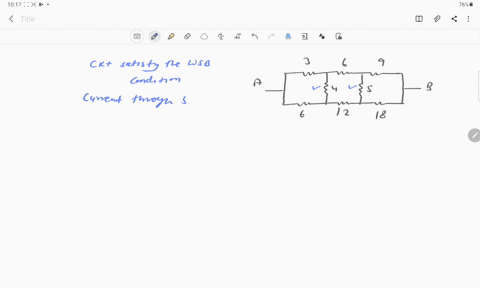 10:17
76%
Title
CKt satisfy the WSB
Condition
Current through 5
3 6 9
A 4 5 B
6 12 18